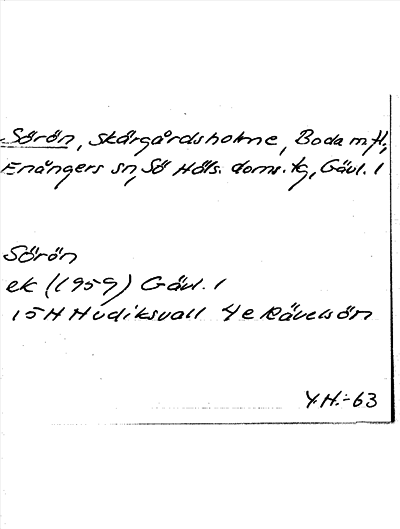 Sörön, skärgårdsholme, Boda m fl,
Enångers sn, Sö Häls. doms. tg, Gävl. l
Sörön
ek (1959) Gävl. l
15H Hudiksvall 4e Rävelsön
Y.H.-63